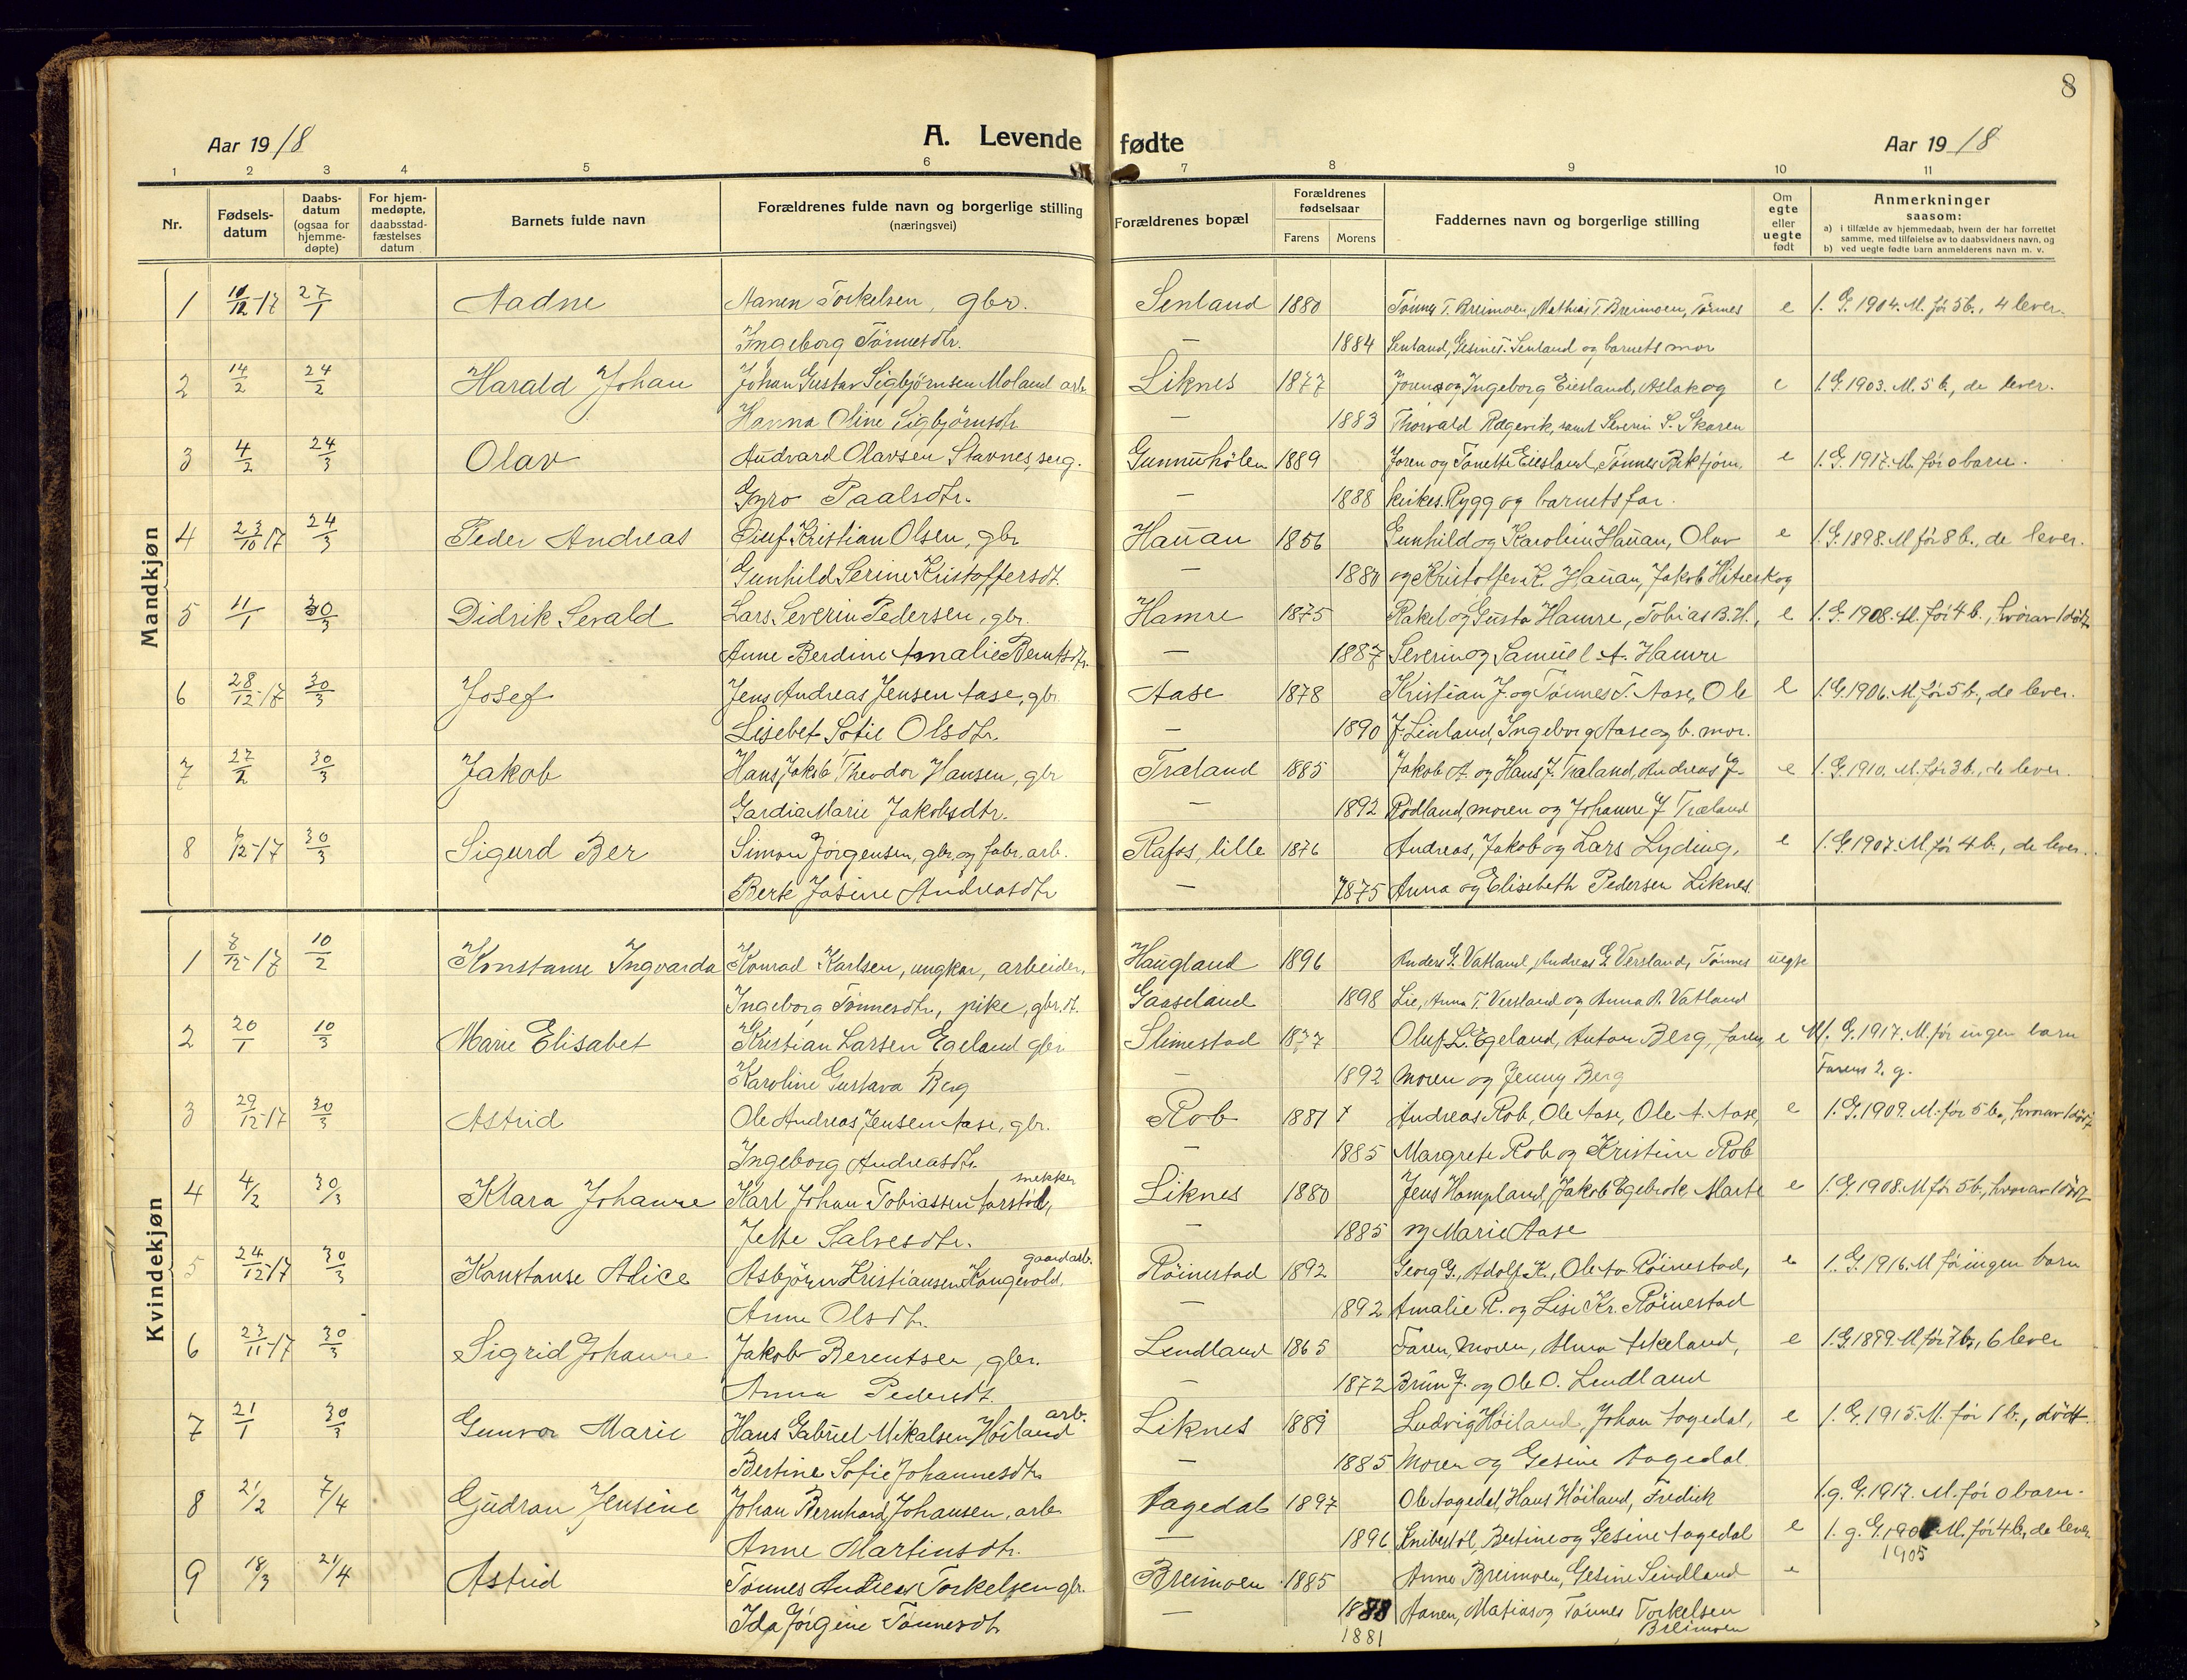 8
Aar 1918
A. Levende fødte
Aar 1918
1 2 3 4 5 6 7 8 9 10 11
Nr.
Fødsels-
datum
Daabs-
datum
(ogsaa for
hjemme-
døpte)
For hjem-
medøpte,
daabsstad-
fæstelses
datum
Barnets fulde navn
Forældrenes fulde navn og borgerlige stilling
(næringsvei)
Forældrenes bopæl
Forældrenes
fødselsaar
Farens Morens
Faddernes navn og borgerlige stilling
Om
egte
eller
uegte
født
Anmerkninger
saasom:
a) i tilfælde av hjemmedaab, hvem der har forrettet
samme, med tilføielse av to daabsvidners navn, og
b) ved uegte fødte barn anmelderens navn m. v.
Mandkjøn
1 10/12-17 27/1 Aadne Aanen Torkelsen, gbr. Senland 1880 Tönnes T. Breimoen, Mathias T. Breimoen, Tönnes e 1. G. 1904. M. för 5 b., 4 lever.
Ingeborg Tönnesdtr. — 1884 Senland, Gesine T. Senland og barnets mor
2 14/2 24/2 Harald Johan Johan Gustav Sigbjörnsen Moland arb. Liknes 1877 Joren og Ingeborg Eiesland, Aslak og e 1. G. 1903. M. 5 b., de lever.
Hanna Oline Sigbjörnsdtr — 1883 Thorvald Rægevik, samt Severin S. Skaren
3 4/2 24/3 Olav Audvard Olavsen Stavnes, serg. Gunnuhölen 1889 Joren og Tonette Eiesland, Tönnes Birktjörn, e 1. G. 1917. M. för 0 barn.
Gyro Paalsdtr. — 1888 kirkes. Rygg og barnets far.
4 23/10 17 24/3 Peder Andreas Oluf Kristian Olsen, gbr Hauan 1856 Gunhild og Karoline Hauan, Olav e 1. G. 1898. M för 8 b., de lever.
Gunhild Serine Kristoffersdt. — 1880 og Kristoffer K. Hauan, Jakob Hitreskog
5 11/1 30/3 Didrik Sevald Lars Severin Pedersen, gbr. Hamre 1875 Rakel og Gusta Hamre, Tobias B. H., e 1. G. 1908. M. för 4 b., hvorav 1 död.
Anne Berdine Amalie Berntsdtr. — 1887 Severin og Samuel A. Hamre
6 28/12-17 30/3 Josef Jens Andreas Jensen Aase, gbr. Aase 1878 Kristian J. og Tönnes T. Aase, Ole e 1. G. 1906. M. för 5 b., de lever.
Lisebet Sofie Olsdtr. — 1890 J. Linland, Ingeborg Aase og b. mor.
7 27/2 30/3 Jakob Hans Jakob Theodor Hansen, gbr Træland 1885 Jakob A. og Hans J. Træland, Andreas J. e 1. G. 1910. M. för 3 b., de lever.
Gardia Marie Jakobsdtr. — 1892 Rödland, moren og Johanne J Træland
8 6/12-17 30/3 Sigurd Ber Simon Jörgensen, gbr. og fabr. arb. Rafos, lille 1876 Andreas, Jakob og Lars Lyding, e 1. G. 1907. M för 4 b., de lever.
Berte Josine Andreasdtr — 1875 Anna og Elisebeth Pedersen Liknes
Kvindekjøn
1 7/12-17 10/2 Konstanse Ingvarda Konrad Karlsen, ungkar, arbeider, Haugland 1896 Anders G. Vatland, Andreas G. Versland, Tönnes uegte
Ingeborg Tönnesdtr, pike, gbr. dt. Gaaseland 1898 Lie, Anna T. Versland og Anna A. Vatland
2 20/1 10/3 Marie Elisabet Kristian Larsen Egeland gbr Slimestad 1877 Oluf L. Egeland, Anton Berg, faren, e M 1. G. 1917. M. för ingen barn
Karoline Gustava Berg — 1892 moren og Jenny Berg Farens 2. g.
3 29/12-17 30/3 Astrid Ole Andreas Jensen Aase, gbr. Rob 1881 Andreas Rob, Ole Aase, Ole A. Aase, e 1. G. 1909. M. för 5 b., hvorav 1 död
Ingeborg Andreasdtr. — 1885 Margrete Rob og Kristine Rob
4 4/2 30/3 Klara Johanne Karl Johan Tobiassen Aarstöl, snekker Liknes 1880 Jens Hompland, Jakob Egebrok, Marte e 1. G. 1908. M för 5 b., hvorav 1 död
Jette Salvesdtr. — 1885 og Marie Aase
5 24/12-17 30/3 Konstanse Alice Asbjörn Kristiansen Kongevold, gaardarb. Röinestad 1892 Georg G., Adolf K., Ole A. Röinestad, e 1. G. 1916. M för ingen barn
Anne Olsdtr. — 1892 Amalie R. og Lise Kr. Röinestad
6 23/11-17 30/3 Sigrid Johanne Jakob Berentsen, gbr. Lindland 1865 Faren, moren, Alma Askeland, e 1. G. 1899. M för 7 b., 6 lever
Anna Pedersdt. — 1872 Brun J. og Ole O. Lindland
7 21/1 30/3 Gunvor Marie Hans Gabriel Mikalsen Höiland arb. Liknes 1889 Ludvig Höiland, Johan Aagedal, e 1. G. 1915. M. för 1 b., dödt.
Bertine Sofie Johannesdtr — 1885 Moren og Gesine Aagedal.
8 21/2 7/4 Gudrun Jensine Johan Bernhard Johansen, arb. Aagedal 1897 Ole Aagedal, Hans Höiland, Fredrik 1. g. G. 1917. M. för 0 barn.
Anne Martinsdtr. — 1896 Knibestöl, Bertine og Gesine Aagedal e 1. g. G. 190 M. för 4 b., de lever.
1905
9 18/3 21/4 Astrid Tönnes Andreas Torkelsen gbr. Breimoen 1885 Anne Breimoen, Gesine Sindland e
Ida Jörgine Tönnesdtr — 1888 Aanen, Matias og Tönnes Torkelsen
1881 Breimoen